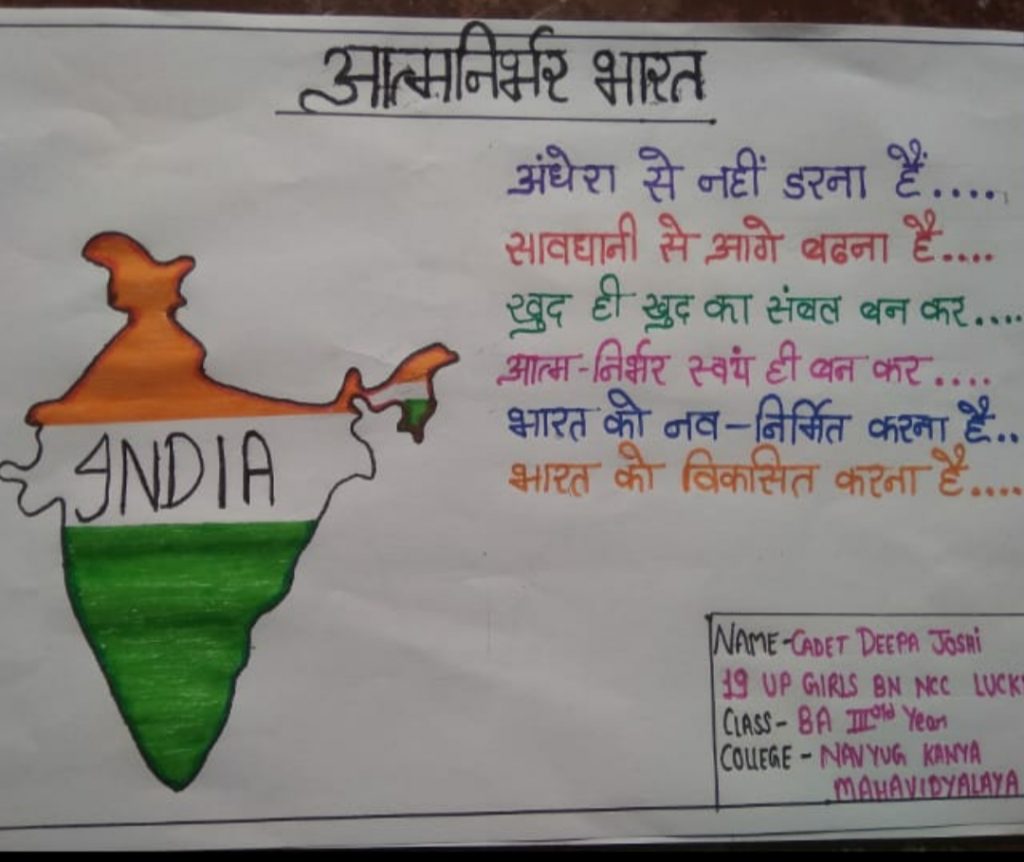 आत्मनिर्भर भारत
अंधेरा से नहीं डरना हैं.....
सावधानी से आगे बढना है....
खुद ही खुद का संबल बन कर....
आत्म-निर्भर स्वयं ही बन कर ....
भारत को नव-निर्मित करना है..
भारत को विकसित करना है....
INDIA
NAME-CADET DEEPA JOSHI
19 UP GIRLS BN NCC LUCK
CLASS- BA IIIrd Year
COLLEGE - NAVYUG KANYA
MAHAVIDYALAYA